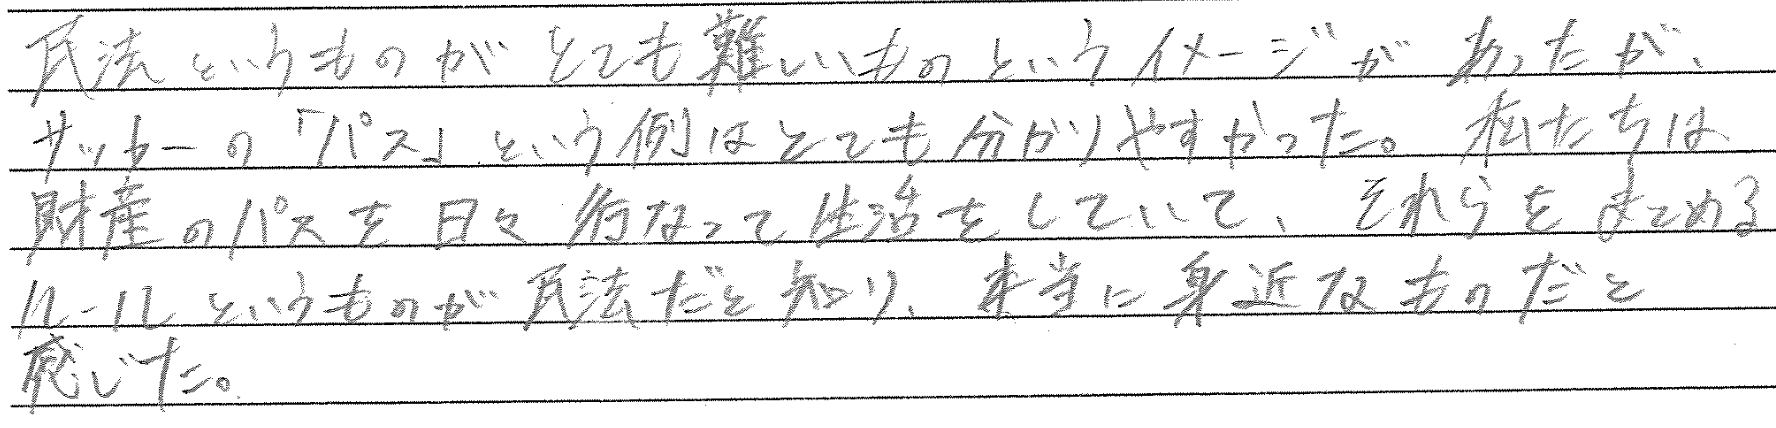 民法というものがとても難しいものというイメージがあったが、
サッカーの「パス」という例はとても分かりやすかった。私たちは
財産のパスを日々行なって生活をしていて、それらをまとめる
ルールというものが民法だと知り、本当に身近なものだと
感じた。